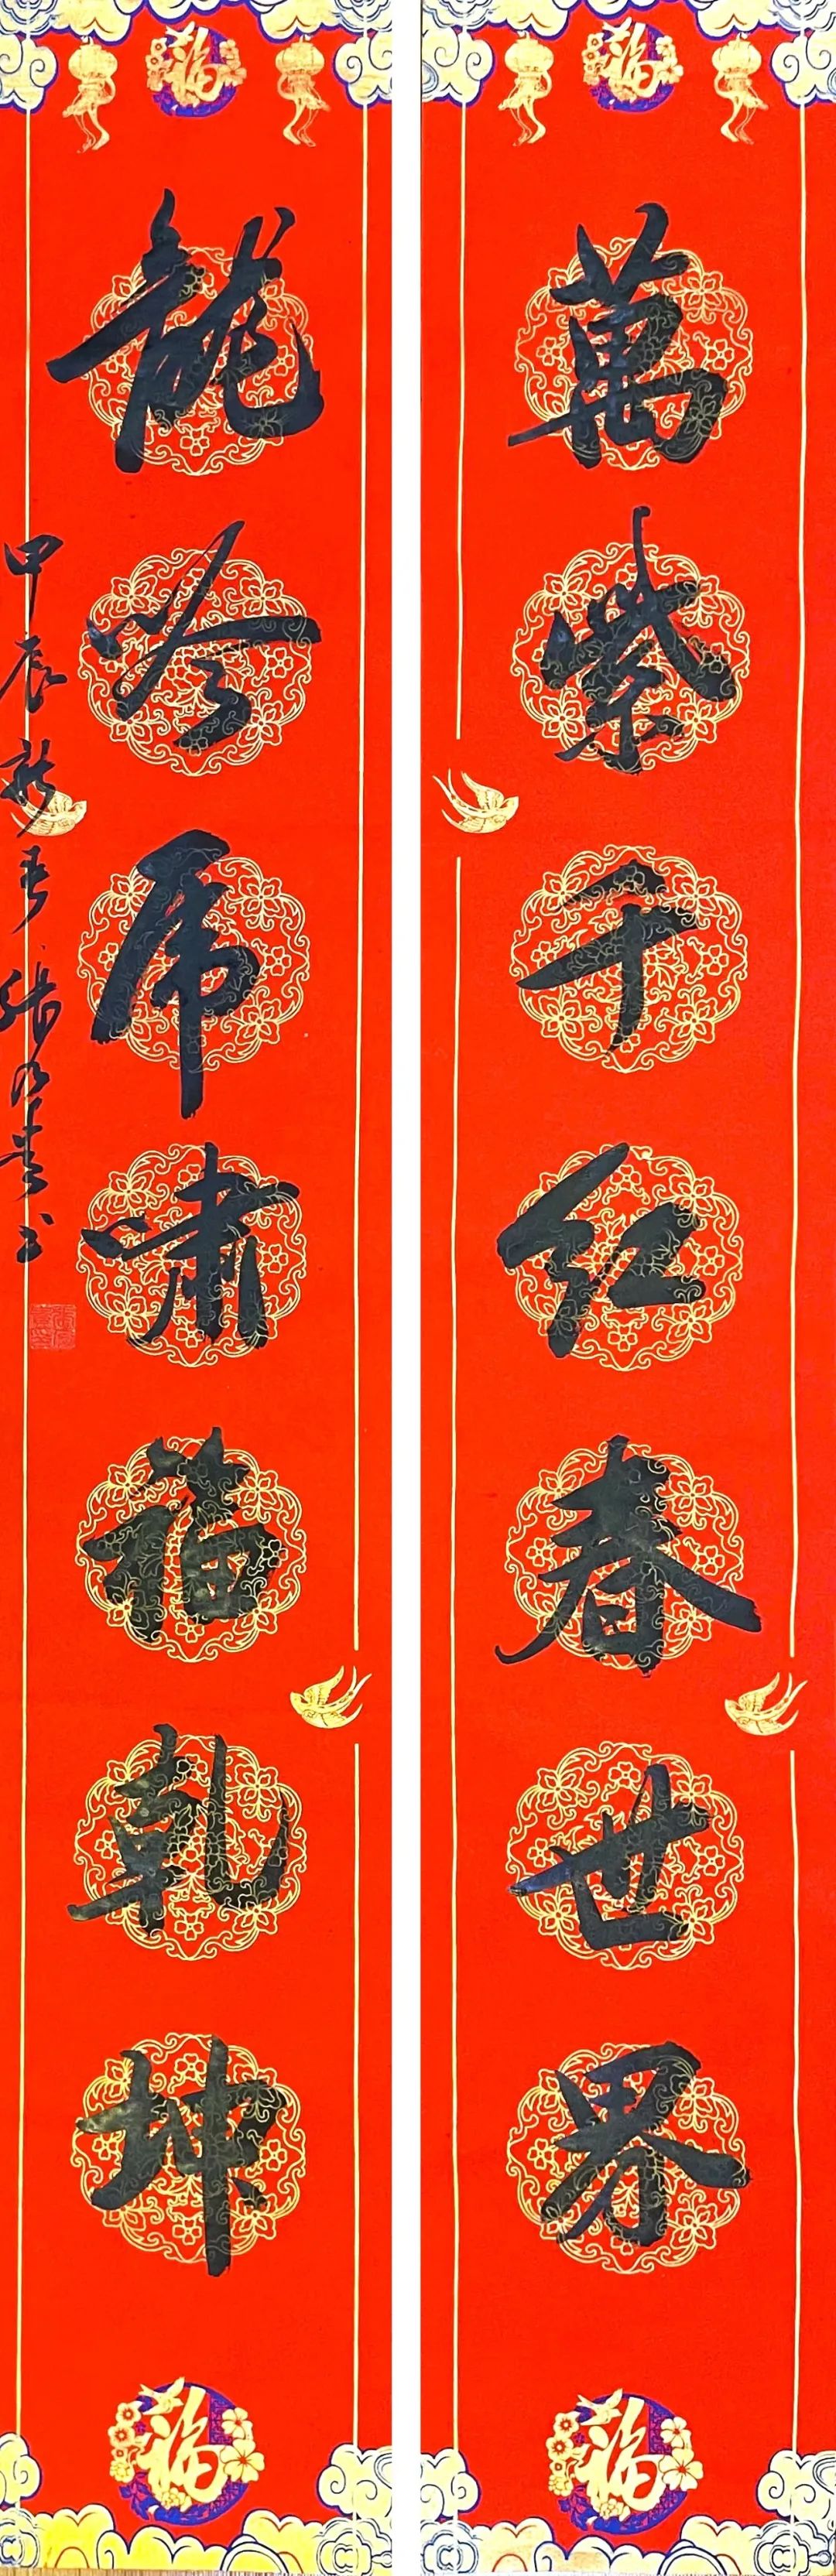 福
萬紫千红春世界
福
福
龍吟虎嘯福乾坤
甲辰新春張乃貴书
福